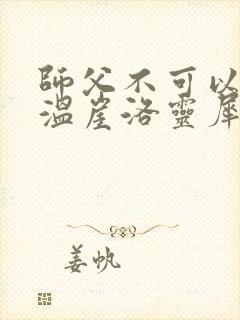 師父不可以
溫崖洛靈犀
姜帆